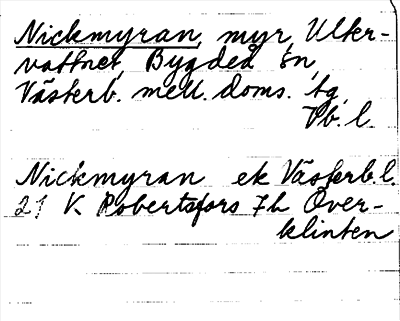 Nickmyran, myr, Ulter-
vattnet, Bygdeå sn,
Västerb. mell. doms. tg,
Vb. l.
Nickmyran ek Västerb. l.
21 K Robertsfors 7h Över-
klinten